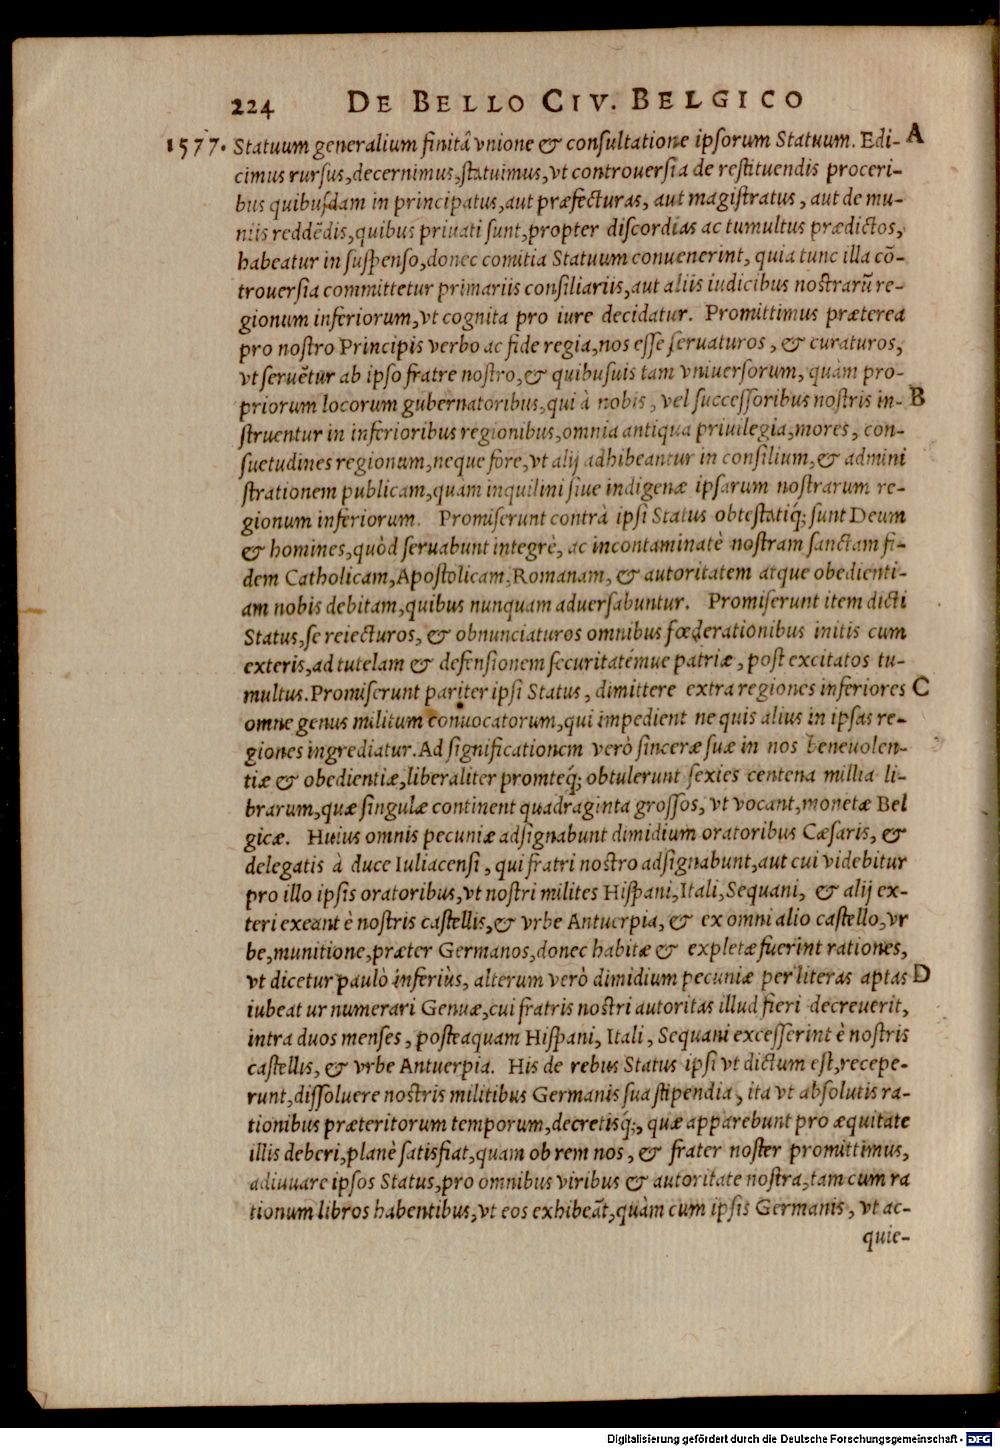 224 DE BELLO CIV. BELGICO
1577. Statuum generalium finitâ vnione & consultatione ipsorum Statuum. Edi- A
cimus rursus,decernimus,statuimus,vt controuersia de restituendis proceri-
bus quibusdam in principatus,aut præfecturas, aut magistratus, aut de mu-
niis reddẽdis,quibus priuati sunt,propter discordias ac tumultus prædictos,
habeatur in suspenso,donec comitia Statuum conuenerint, quia tunc illa cõ-
trouersia committetur primariis consiliariis,aut aliis iudicibus nostrarũ re-
gionum inferiorum,vt cognita pro iure decidatur. Promittimus præterea
pro nostro Principis verbo ac fide regia,nos esse seruaturos, & curaturos,
vt seruẽtur ab ipso fratre nostro,& quibusuis tam vniuersorum, quàm pro-
priorum locorum gubernatoribus,qui à nobis, vel successoribus nostris in- B
struentur in inferioribus regionibus,omnia antiqua priuilegia,mores, con-
suetudines regionum,neque fore,vt alij adhibeantur in consilium,& admini
strationem publicam,quàm inquilini siue indigenæ ipsarum nostrarum re-
gionum inferiorum. Promiserunt contrà ipsi Status obtestatiq́; sunt Deum
& homines,quòd seruabunt integrè, ac incontaminatè nostram sanctam fi-
dem Catholicam,Apostolicam,Romanam, & autoritatem atque obedienti-
am nobis debitam,quibus nunquam aduersabuntur. Promiserunt item dicti
Status,se reiecturos, & obnunciaturos omnibus fœderationibus initis cum
exteris,ad tutelam & defensionem securitatémue patriæ, post excitatos tu-
multus.Promiserunt pariter ipsi Status, dimittere extra regiones inferiores C
omne genus militum conuocatorum,qui impedient ne quis alius in ipsas re-
giones ingrediatur.Ad significationem verò sinceræ suæ in nos beneuolen-
tiæ & obedientiæ,liberaliter promteq́; obtulerunt sexies centena millia li-
brarum,quæ singulæ continent quadraginta grossos, vt vocant,monetæ Bel
gicæ. Huius omnis pecuniæ adsignabunt dimidium oratoribus Cæsaris, &
delegatis à duce Iuliacensi, qui fratri nostro adsignabunt,aut cui videbitur
pro illo ipsis oratoribus,vt nostri milites Hispani,Itali,Sequani, & alij ex-
teri exeant è nostris castellis,& vrbe Antuerpia, & ex omni alio castello,vr
be,munitione,præter Germanos,donec habitæ & expletæ fuerint rationes,
vt dicetur paulò inferiùs, alterum verò dimidium pecuniæ per literas aptas D
iubeatur numerari Genuæ,cui fratris nostri autoritas illud fieri decreuerit,
intra duos menses, posteaquam Hispani, Itali, Sequani excesserint è nostris
castellis, & vrbe Antuerpia. His de rebus Status ipsi vt dictum est,recepe-
runt,dissoluere nostris militibus Germanis sua stipendia, ita vt absolutis ra-
tionibus præteritorum temporum,decretisq́;, quæ apparebunt pro æquitate
illis deberi,planè satisfiat,quam ob rem nos, & frater noster promittimus,
adiuuare ipsos Status,pro omnibus viribus & autoritate nostra,tam cum ra
tionum libros habentibus,vt eos exhibeãt,quàm cum ipsis Germanis, vt ac-
quie-
Digitalisierung gefördert durch die Deutsche Forschungsgemeinschaft - DFG